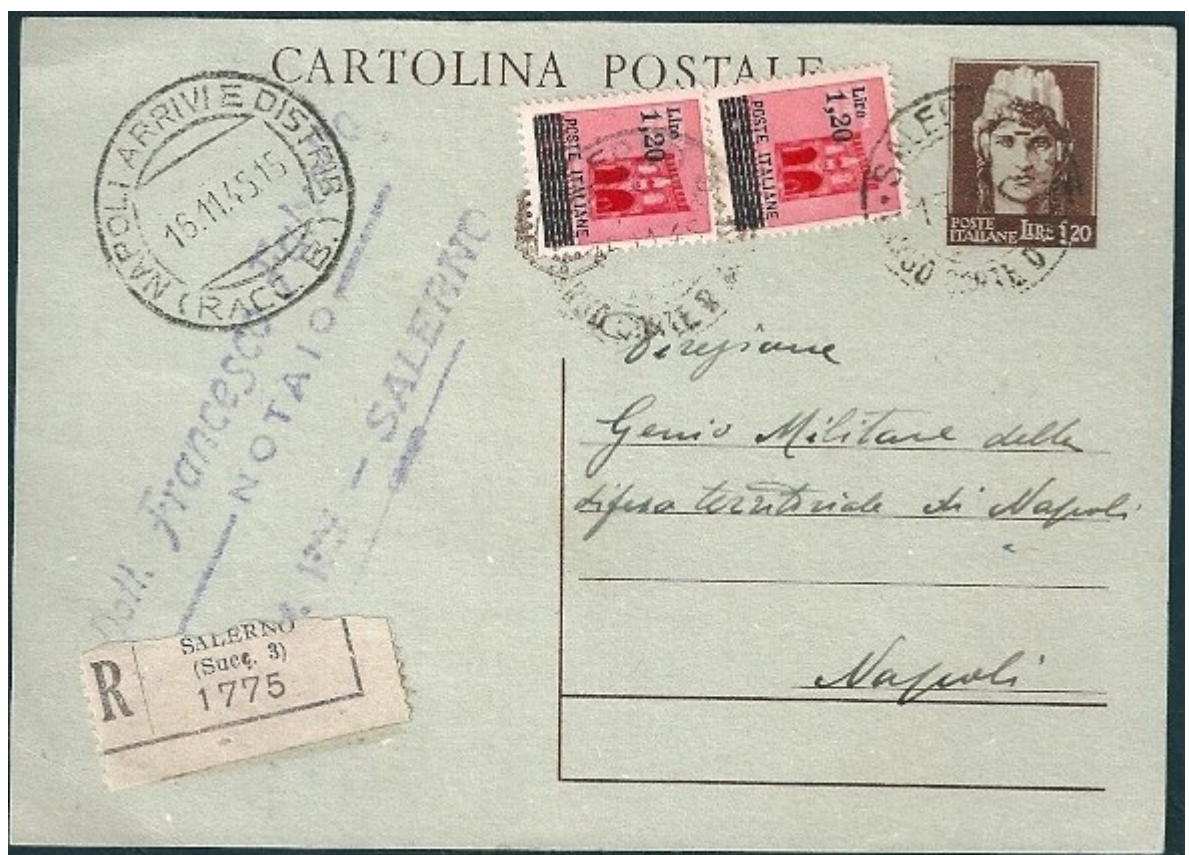 CARTOLINA POSTALE
NAPOLI ARRIVI E DISTRIB.
16.11.45.15
(RACC. B)
Lire
1,20
POSTE ITALIANE
Lire
1,20
POSTE ITALIANE
POSTE
ITALIANE LIRE 1,20
Dott. Francesco
NOTAIO
SALERNO
Direzione
Genio Militare della
difesa territoriale di Napoli
Napoli
R
SALERNO
(Succ. 3)
1775